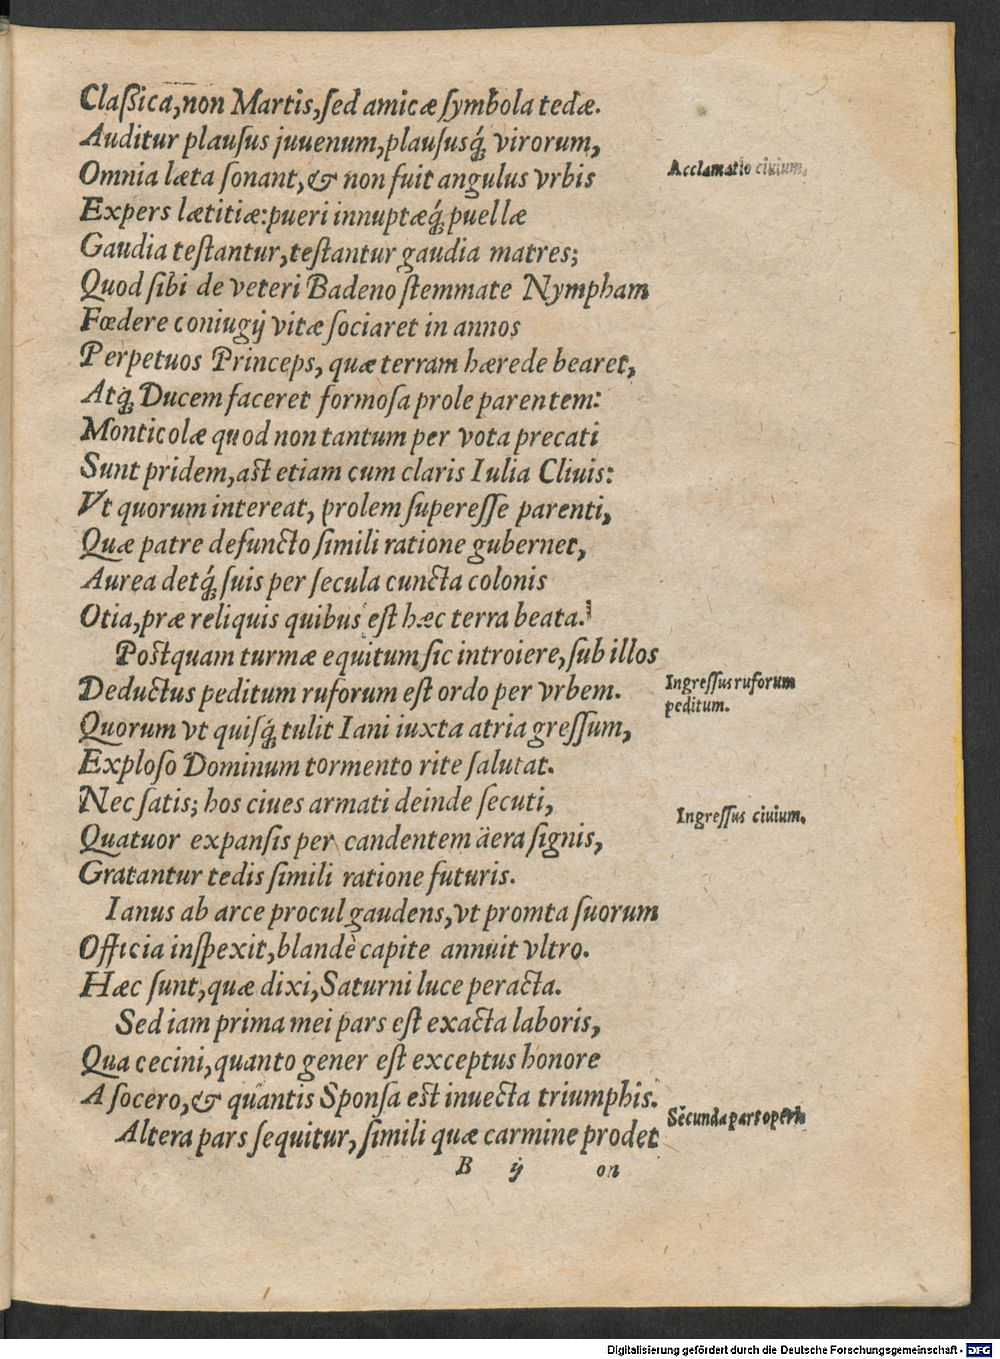 Claſsica, non Martis, ſed amicæ ſymbola tedæ.
Auditur plauſus juuenum, plauſusq́; virorum,
Acclamatio ciuium.
Omnia læta ſonant, & non fuit angulus vrbis
Expers lætitiæ: pueri innuptæq́; puellæ
Gaudia teſtantur, teſtantur gaudia matres;
Quod ſibi de veteri Badeno ſtemmate Nympham
Fœdere coniugij vitæ ſociaret in annos
Perpetuos Princeps, quæ terram hærede bearet,
Atq; Ducem faceret formoſa prole parentem:
Monticolæ quod non tantum per vota precati
Sunt pridem, aſt etiam cum claris Iulia Cliuis:
Vt quorum intereat, prolem ſupereſſe parenti,
Quæ patre defuncto ſimili ratione gubernet,
Aurea detq́; ſuis per ſecula cuncta colonis
Otia, præ reliquis quibus eſt hæc terra beata.
Poſtquam turmæ equitum ſic introiere, ſub illos
Deductus peditum ruforum eſt ordo per vrbem.
Ingreſſus ruforum
peditum.
Quorum vt quiſq́; tulit Iani iuxta atria greſſum,
Exploſo Dominum tormento rite ſalutat.
Nec ſatis; hos ciues armati deinde ſecuti,
Ingreſſus ciuium.
Quatuor expanſis per candentem äera ſignis,
Gratantur tedis ſimili ratione futuris.
Ianus ab arce procul gaudens, vt promta ſuorum
Officia inſpexit, blandè capite annuit vltro.
Hæc ſunt, quæ dixi, Saturni luce peracta.
Sed iam prima mei pars eſt exacta laboris,
Qua cecini, quanto gener eſt exceptus honore
A ſocero, & quantis Sponſa eſt inuecta triumphis.
Secunda pars operis
Altera pars ſequitur, ſimili quæ carmine prodet
B ij on
Digitalisierung gefördert durch die Deutsche Forschungsgemeinschaft - DFG